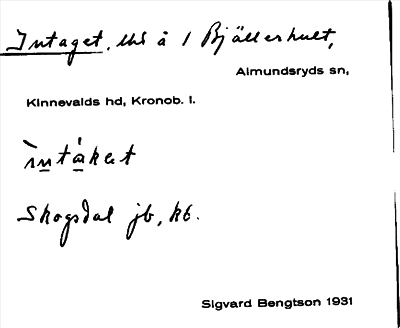 Intaget, lhs å 1 Bjällerhult,
Almundsryds sn,
Kinnevalds hd, Kronob. l.
ìntákat
Skogsdal jb, kb.
Sigvard Bengtson 1931